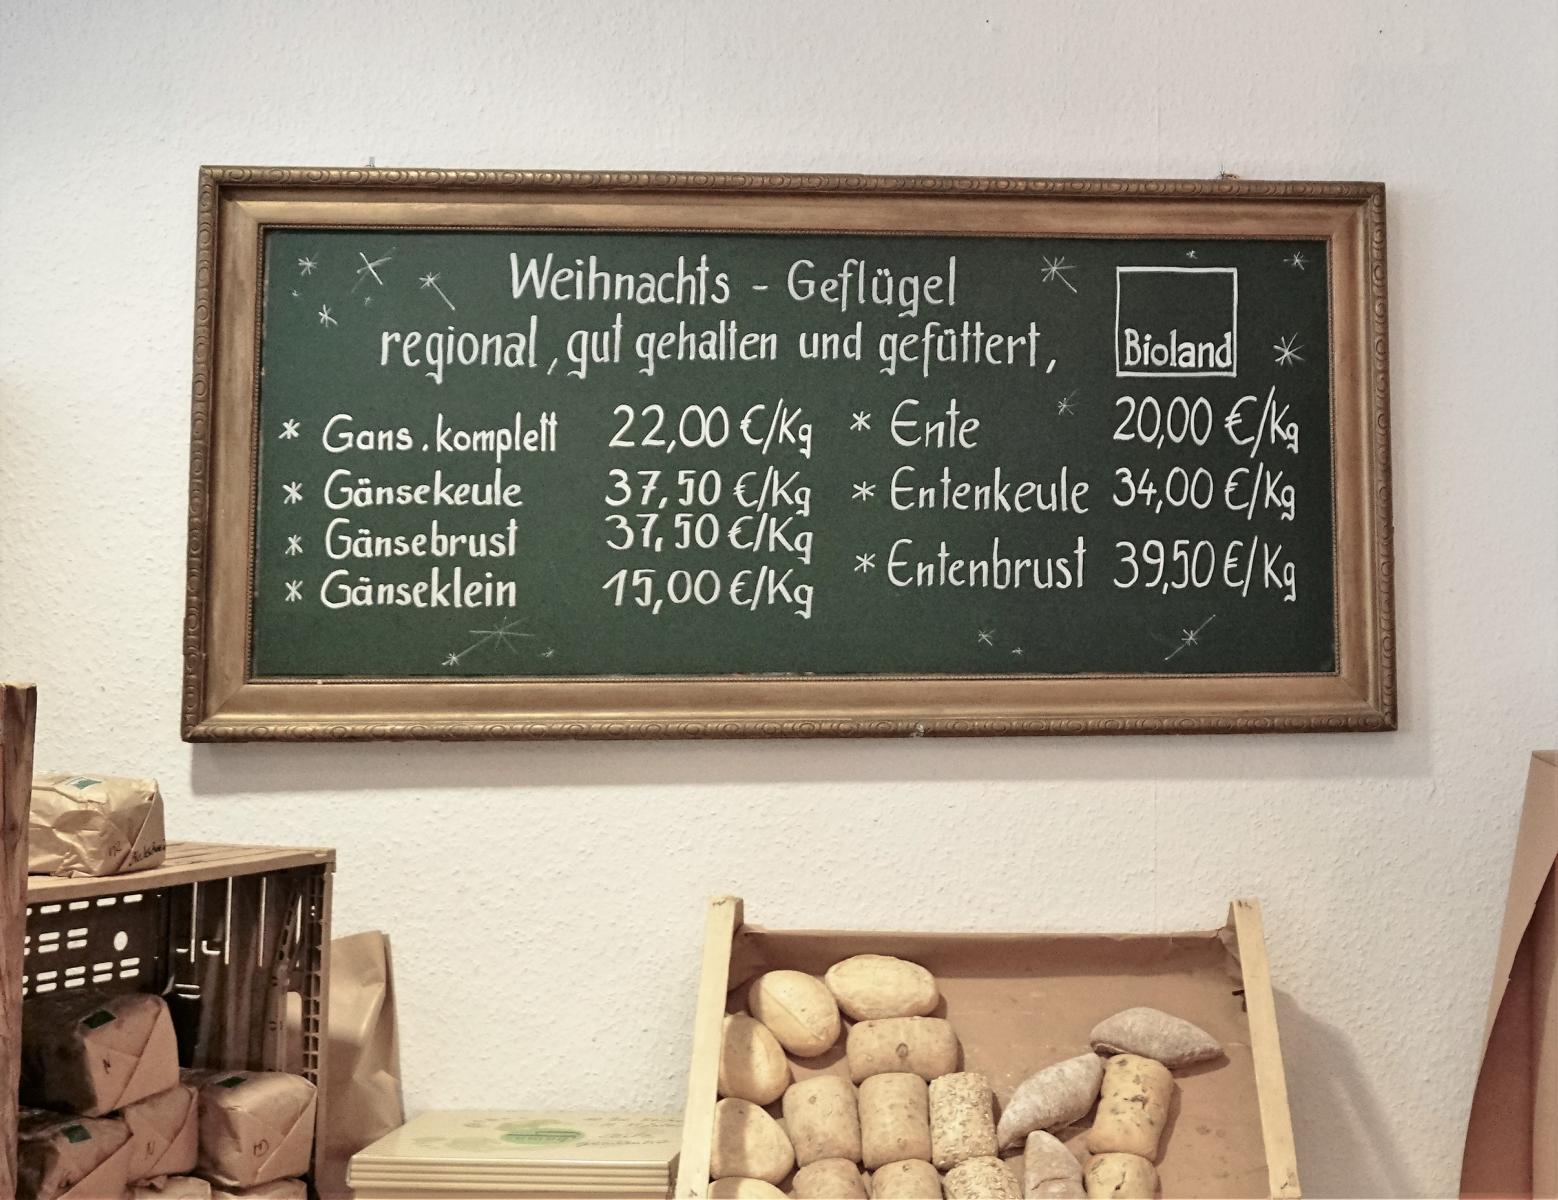 Weihnachts - Geflügel
regional, gut gehalten und gefüttert,
Bioland
* Gans. komplett 22,00 €/Kg
* Gänsekeule 37,50 €/Kg
* Gänsebrust 37,50 €/Kg
* Gänseklein 15,00 €/Kg
* Ente 20,00 €/Kg
* Entenkeule 34,00 €/Kg
* Entenbrust 39,50 €/Kg